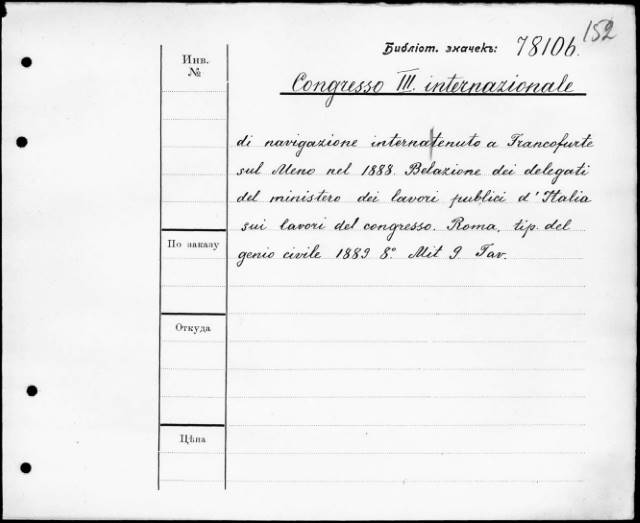 152
Библіот. значекъ: 78106.
Инв. №
Congresso III. internazionale
di navigazione interna tenuto a Francofurte
sul Meno nel 1888. Belazione dei delegati
del ministero dei lavori publici d'Italia
sui lavori del congresso. Roma, tip. del
По заказу
genio civile 1889 8º. Mit 9 Tav.
Откуда
Цѣна